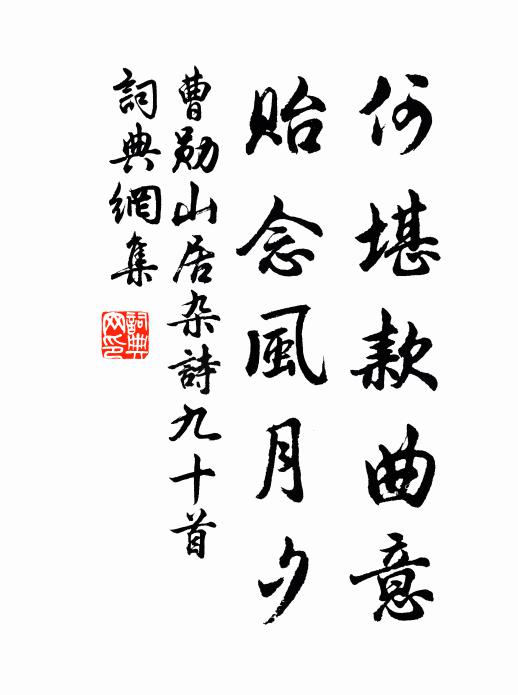 何堪款曲意
貽念風月夕
曹勛山居杂詩九十首
詞典網集
詞典網印